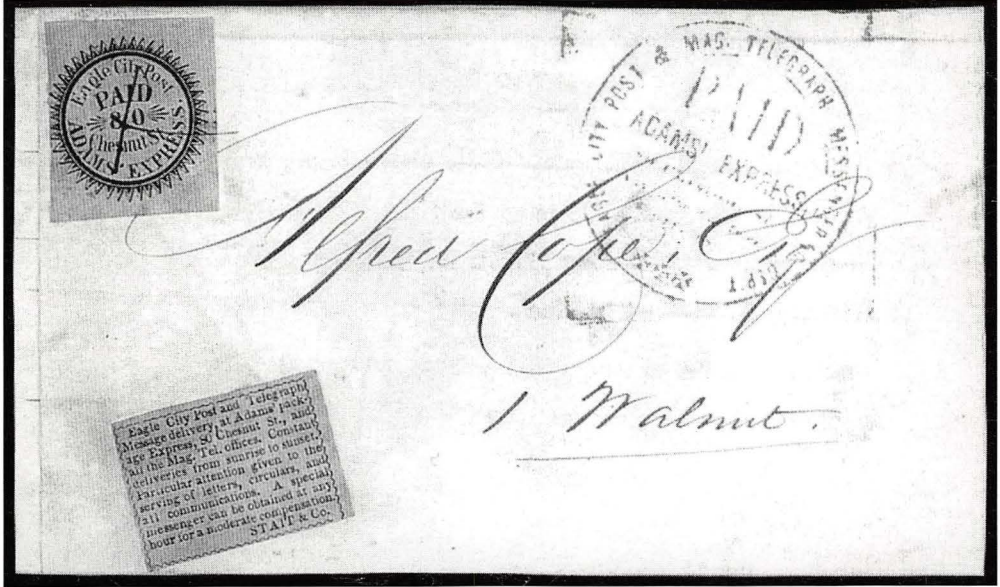 Eagle City Post
PAID
80
Chesnut St.
ADAMS EXPRESS
CITY POST & MAG. TELEGRAPH MESSENGER
PAID
ADAMS' EXPRESS
Alfred Cope, Esq
1 Walnut.
Eagle City Post and Telegraph
Message delivery, at Adams' pack-
age Express, 80 Chesnut St., and
all the Mag. Tel. offices. Constant
deliveries from sunrise to sunset.
Particular attention given to the
serving of letters, circulars, and
all communications. A special
messenger can be obtained at any
hour for a moderate compensation.
STAIT & Co.